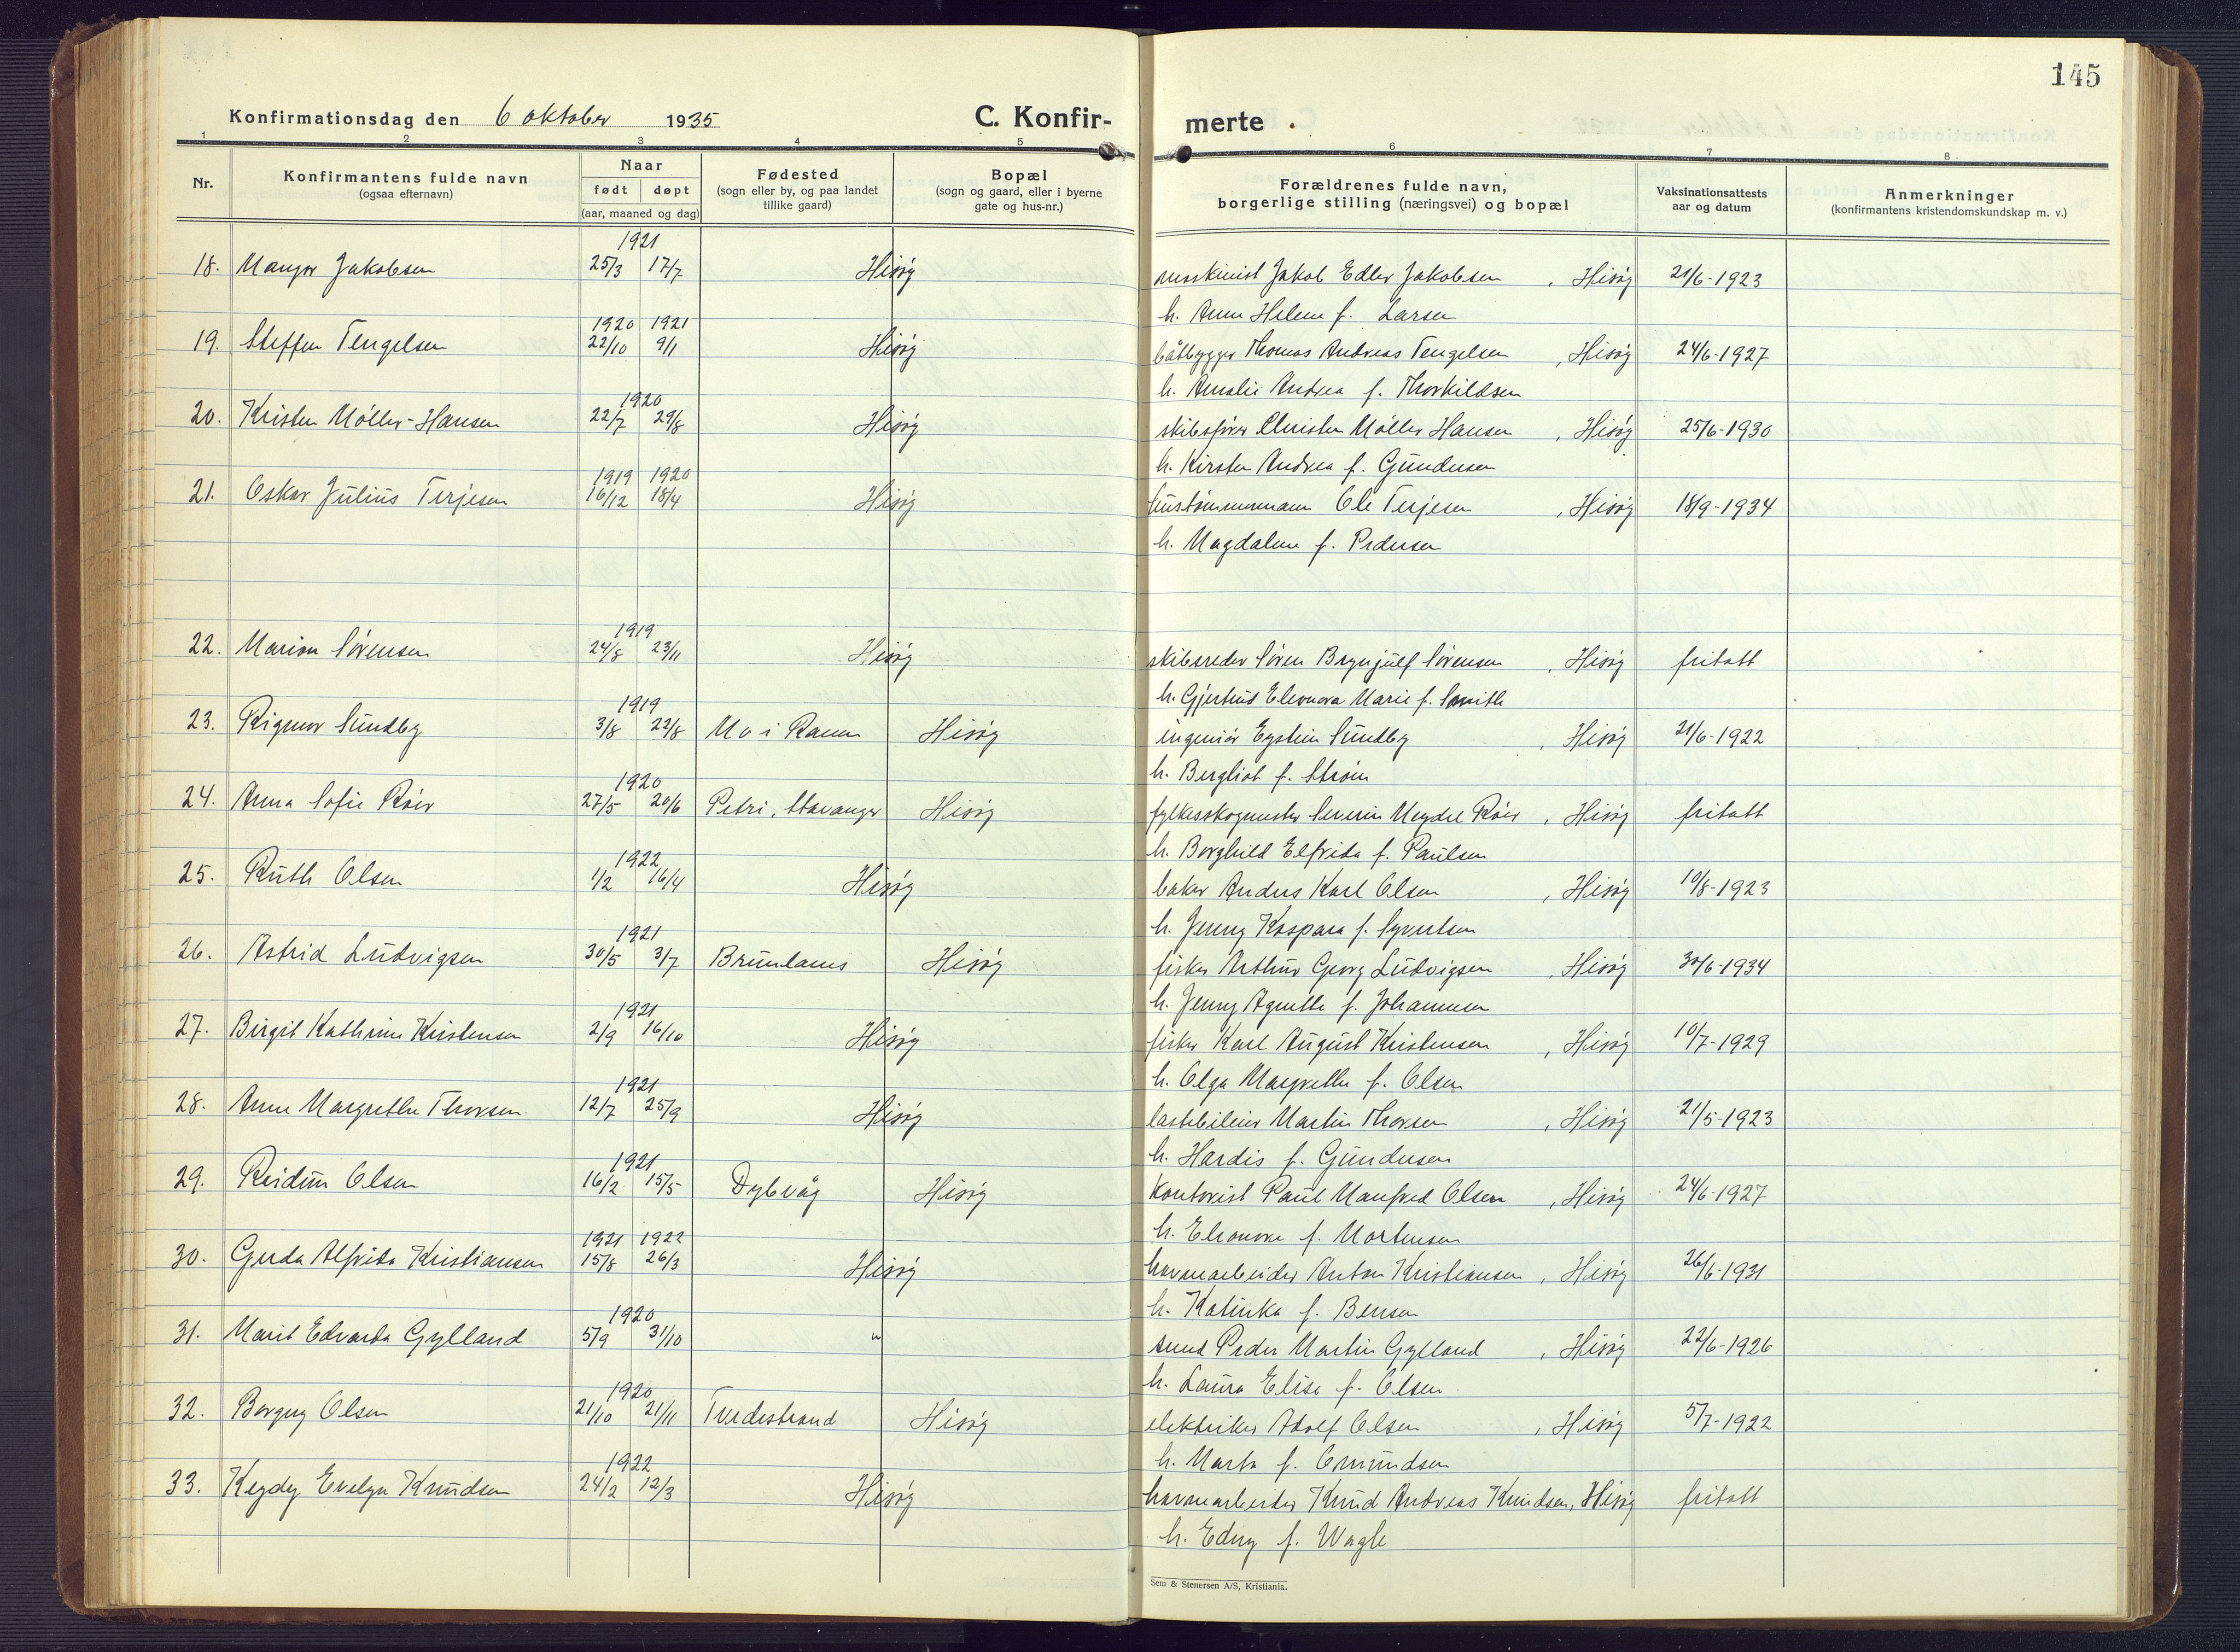 145
Konfirmationsdag den 6 oktober 1935
C. Konfir- merte
1 2 3 4 5 6 7 8
Nr.
Konfirmantens fulde navn
(ogsaa efternavn)
Naar
født døpt
(aar, maaned og dag)
Fødested
(sogn eller by, og paa landet
tillike gaard)
Bopæl
(sogn og gaard, eller i byerne
gate og hus-nr.)
Forældrenes fulde navn,
borgerlige stilling (næringsvei) og bopæl
Vaksinationsattests
aar og datum
Anmerkninger
(konfirmantens kristendomskundskap m. v.)
1921
18. Jakobsen 25/3 17/7 Hisøy maskinist Jakob Edler Jakobsen, Hisøy 21/6-1923
h. Anne Helene f. Larsen
1920 1921
19. Steffen Tengelsen 22/10 9/1 Hisøy båtbygger Thomas Andreas Tengelsen, Hisøy 24/6-1927
h. Amalie Andrea f. Thorkildsen
1920
20. Kristen Møller-Hansen 22/7 29/8 Hisøy skibsfører Christen Møller Hansen, Hisøy 25/6-1930
h. Kirsten Andrea f. Gundersen
1919 1920
21. Oskar Julius Terjesen 16/12 18/4 Hisøy hustømmermann Ole Terjesen, Hisøy 18/9-1934
h. Magdalene f. Pedersen
1919
22. Marion Sørensen 24/8 23/11 Hisøy skibsreder Søren Brynjulf Sørensen, Hisøy fritatt
h. Gjertrud Eleonora Marie f. Smith
1919
23. Rigmor Sundby 3/8 22/8 Mo i Rana Hisøy ingeniør Eystein Sundby, Hisøy 21/6-1922
h. Bergliot f. Strøm
1920
24. Anna Sofie Röer 27/5 20/6 Petri, Stavanger Hisøy fylkesskogmester Severin Meydel Röer, Hisøy fritatt
h. Borghild Elfrida f. Paulsen
1922
25. Ruth Olsen 1/2 16/4 Hisøy baker Anders Karl Olsen, Hisøy 10/8-1923
h. Jenny Kaspara f. Syvertsen
1921
26. Astrid Ludvigsen 30/5 3/7 Brunlanes Hisøy fisker Arthur Georg Ludvigsen, Hisøy 30/6-1934
h. Jenny Agnethe f. Johannesen
1921
27. Birgit Kathrine Kristensen 2/9 16/10 Hisøy fisker Karl August Kristensen, Hisøy 10/7-1929
h. Olga Margrethe f. Olsen
1921
28. Anne Margrethe Thorsen 12/7 25/9 Hisøy lastebileier Martin Thorsen, Hisøy 21/5-1923
h. Hardis f. Gundersen
1921
29. Reidun Olsen 16/2 15/5 Dybvåg Hisøy kontorist Paul Manfred Olsen, Hisøy 24/6-1927
h. Eleonore f. Mortensen
1921 1922
30. Gerda Alfrida Kristiansen 15/8 26/3 Hisøy havnearbeider Anton Kristiansen, Hisøy 26/6-1931
h. Katinka f. Bensen
1920
31. Marit Edvarda Gylland 5/9 31/10 " smed Peder Martin Gylland, Hisøy 22/6-1926
h. Laura Elise f. Olsen
1920
32. Borgny Olsen 21/10 21/11 Tvedestrand Hisøy elektriker Adolf Olsen, Hisøy 5/7-1922
h. Marta f. Omundsen
1922
33. Keydy Evelyn Knudsen 24/2 12/3 Hisøy havnearbeider Knud Andreas Knudsen, Hisøy fritatt
h. Edny f. Wagle
Sem & Stenersen A/S, Kristiania.